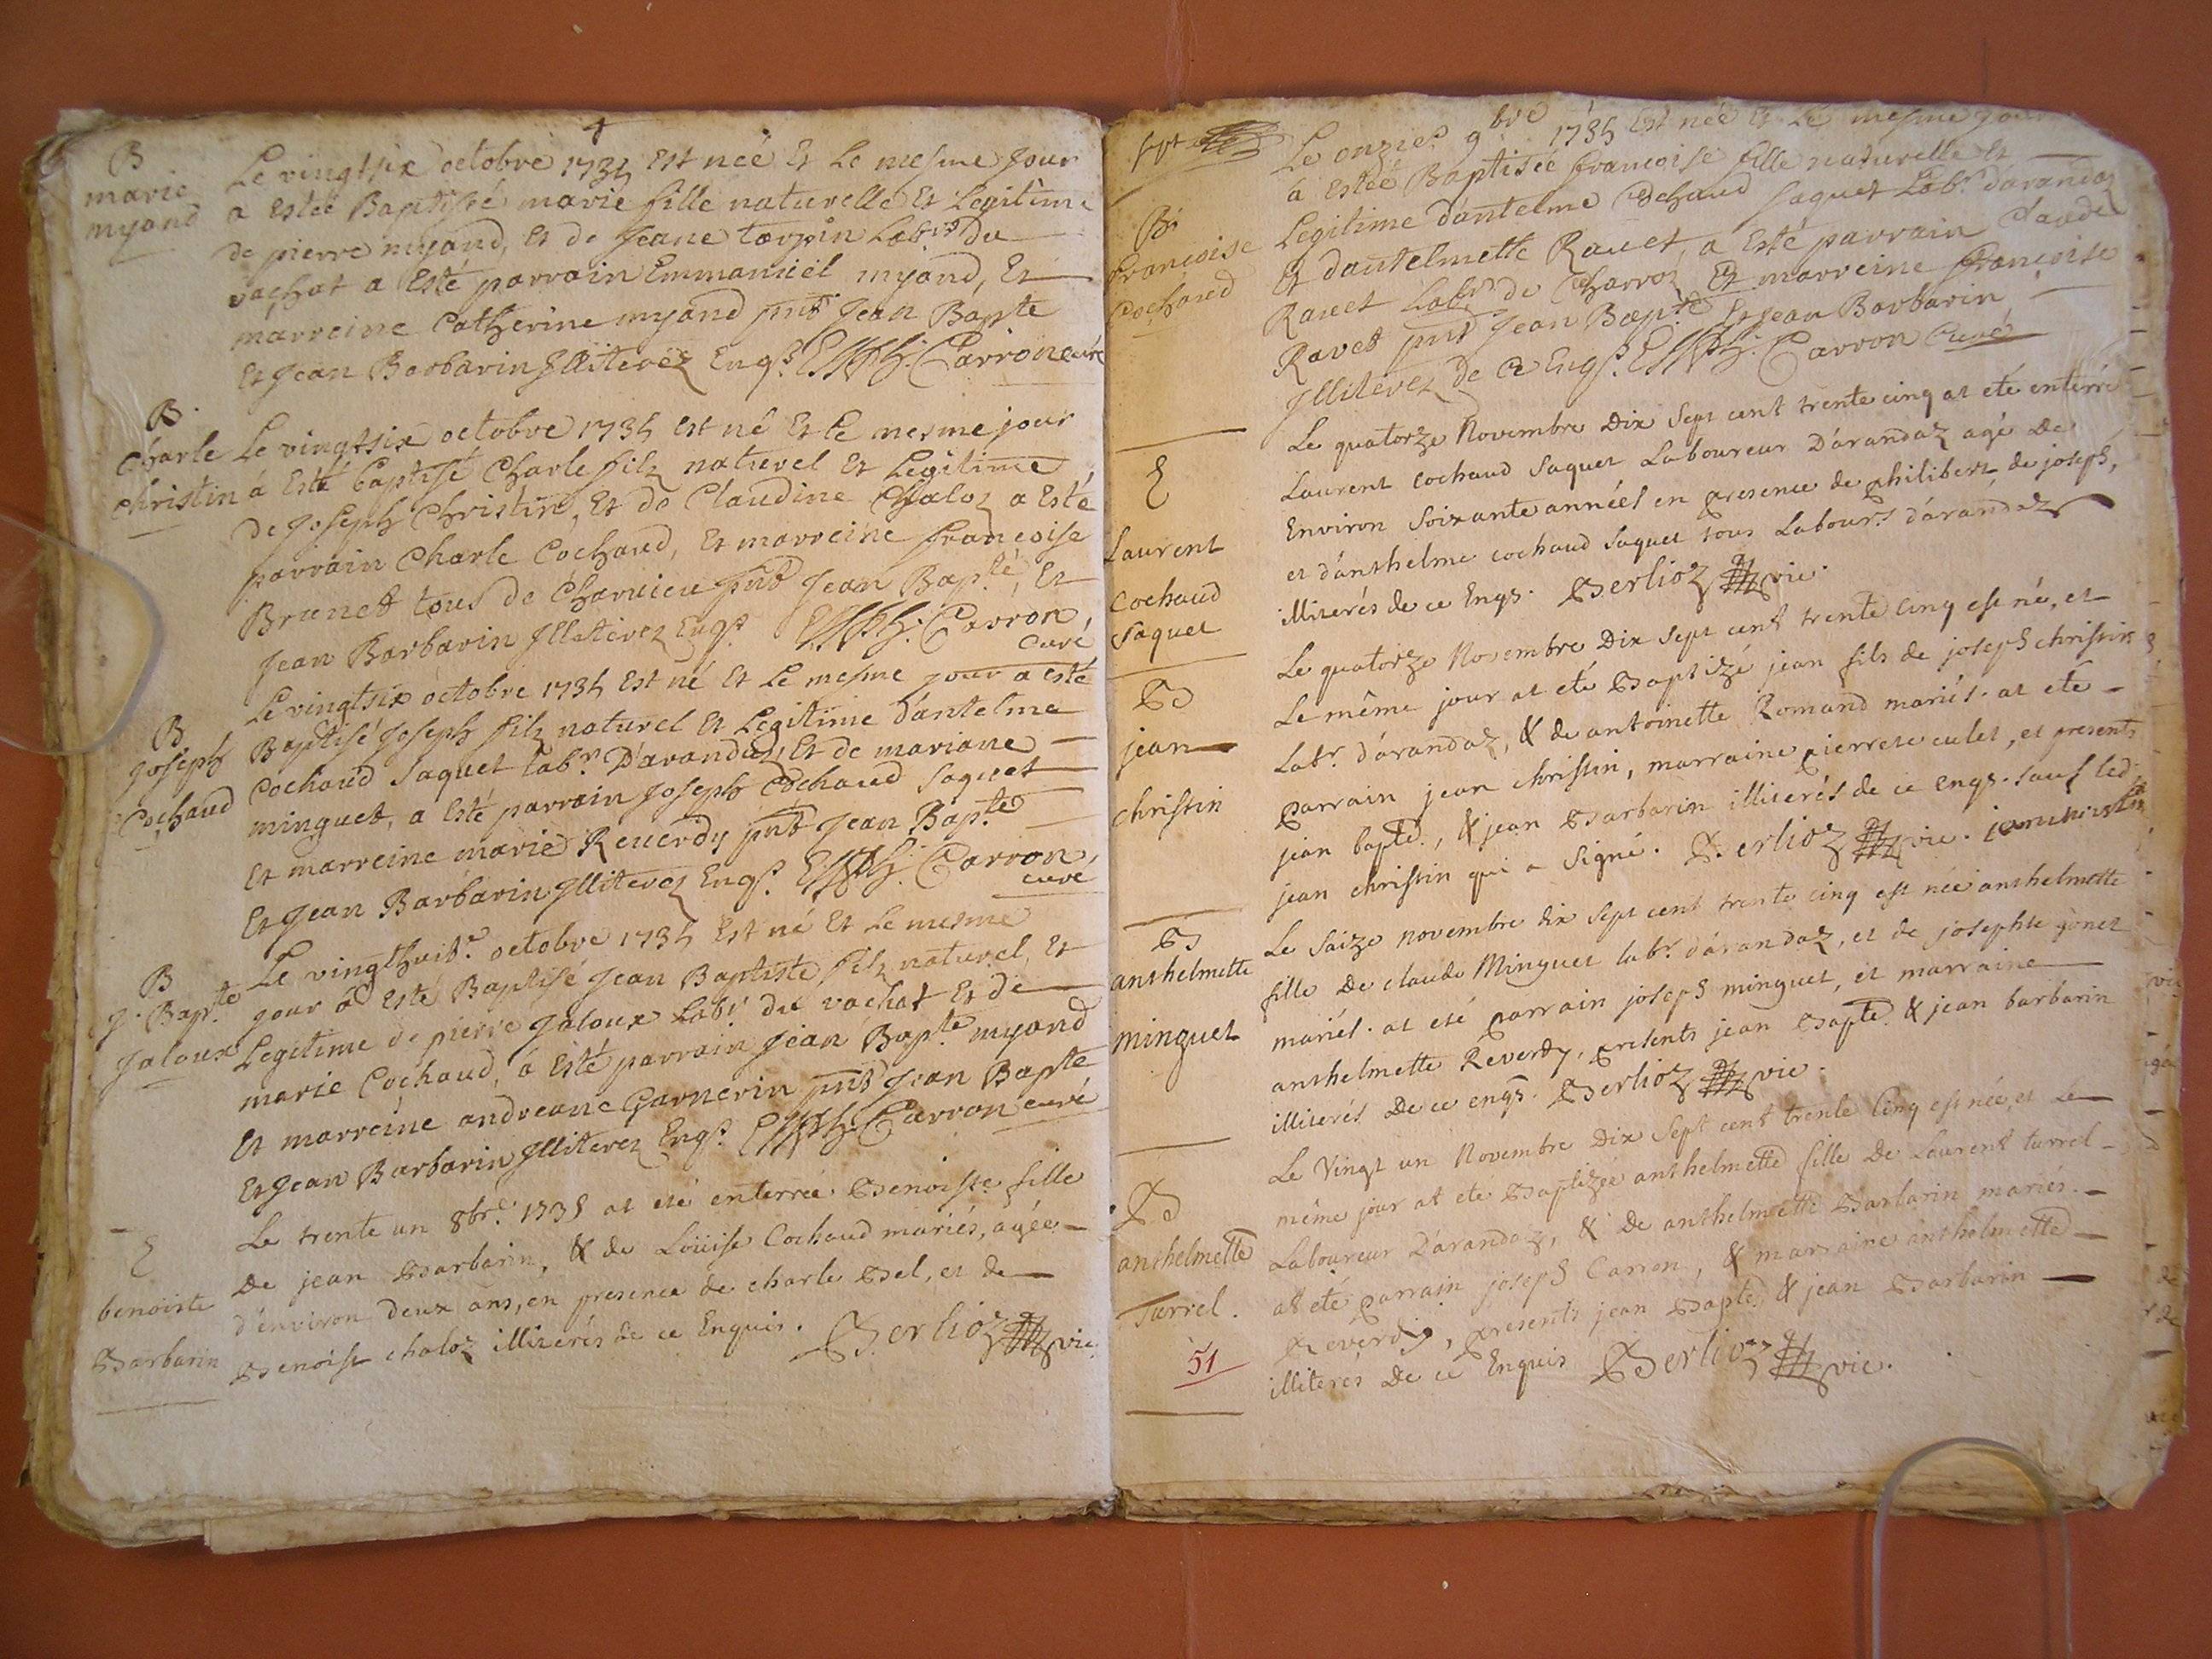 B
marie
myand
Le vingtsix octobre 1735 Est née Et Le mesme Jour
a Estée Baptisée marie fille naturelle Et Legitime
de pierre myand, Et de Jeane torpin Labrs du
vachat a Esté parrain Emmanüel myand, Et
marreine Catherine myand pnts Jean Bapte
Et Jean Barbarin Illiterez Enqs. Carron curé
B
Charle
Christin
Le vingtsix octobre 1735 est né Et Le mesme jour
à Esté baptisé Charle filz naturel Et Legitime
de Joseph Christin, Et de Claudine Chaloz a Esté
parrain Charle Cochaud, Et marreine francoise
Brunet tous de Charnieu pnts Jean Bapte, Et
Jean Barbarin Illiterez Enqs Carron,
curé
B
Joseph
Cochaud
Le vingtsix octobre 1735 Est né Et Le mesme jour a esté
Baptisé Joseph filz naturel Et Legitime d'antelme
Cochaud Saquet labr. D'arandaz Et de mariane
minguet, a Esté parrain Joseph Cochaud Saquet
Et marreine marie Reuerdy pnts Jean Bapte
Et Jean Barbarin Illiterez Enqs. Carron,
curé
B
J. Bapte
Jaloux
Le vingthuitr. octobre 1735 Est né Et Le mesme
jour à Esté Baptisé Jean Baptiste filz naturel, Et
Legitime de pierre Jaloux Labr du vachat Et de
marie Cochaud, à Esté parrain Jean Bapte myand
Et marreine andreane Garnerin pnts Jean Bapte
Et Jean Barbarin Illiterez Enqs. Carron curé
E
benoiste
Barbarin
Le trente un 8bre. 1735 at eté enterrée Benoiste fille
De jean Barbarin, & de Loüise Cochaud mariés, agée
d'environ deux ans, en presence de charle Bel, et de
Benoist chaloz illiterés de ce Enquis. Berlioz vic.
B
francoise
Cochaud
Le onzie. 9bre 1735 Est née Et Le mesme jour
à Estée Baptisée francoise fille naturelle Et
Legitime dantelme Cochaud Saquet Labr. darandaz
Et dantelmette Rauet, a Esté parrain Claude
Rauet Labr de Charroz Et marreine francoise
Ravet pnts Jean Bapte Et Jean Barbarin
Illiterez de ce Enqs. Carron Curé
E
Laurent
Cochaud
Saquet
Le quatorze Novembre Dix Sept cent trente cinq at eté enterré
Laurent Cochaud Saquet Laboureur D'arandaz agé De
Environ Soixante années en presence de philibert de joseph,
et d'anthelme cochaud Saquet tous Labours d'arandaz
illiterés de ce Enqs. Berlioz vic.
B
jean
christin
Le quatorze Novembre Dix Sept cent trente Cinq est né, et
Le même jour at eté Baptizé jean fils de joseph christin
Labr. d'arandaz, & de antoinette Romand mariés. at eté
parrain jean christin, marraine pierrete culet, et presents
jean bapte., & jean Barbarin illiterés de ce enqs. sauf led.
jean christin qui a signé. Berlioz vic. jean christin
B
anthelmette
minguet
Le Saize novembre dix sept cent trente cinq est née anthelmette
fille De claude Minguet labr. d'arandaz, et de josephte gonet
mariés. at eté parrain joseph minguet, et marraine
anthelmette Reverdy, presents jean Bapte. & jean barbarin
illiterés De ce enqs. Berlioz vic.
B
anthelmette
Turrel.
51
Le Vingt un Novembre Dix Sept cent trente Cinq est née, et Le
même jour at eté Baptizée anthelmette fille De Laurent turrel
Laboureur D'arandaz, & De anthelmette Barbarin mariés.
at eté parrain joseph Carron, & marraine anthelmette
Reverdy, presents jean Bapte. & jean Barbarin
illiterés De ce Enquis Berlioz vic.